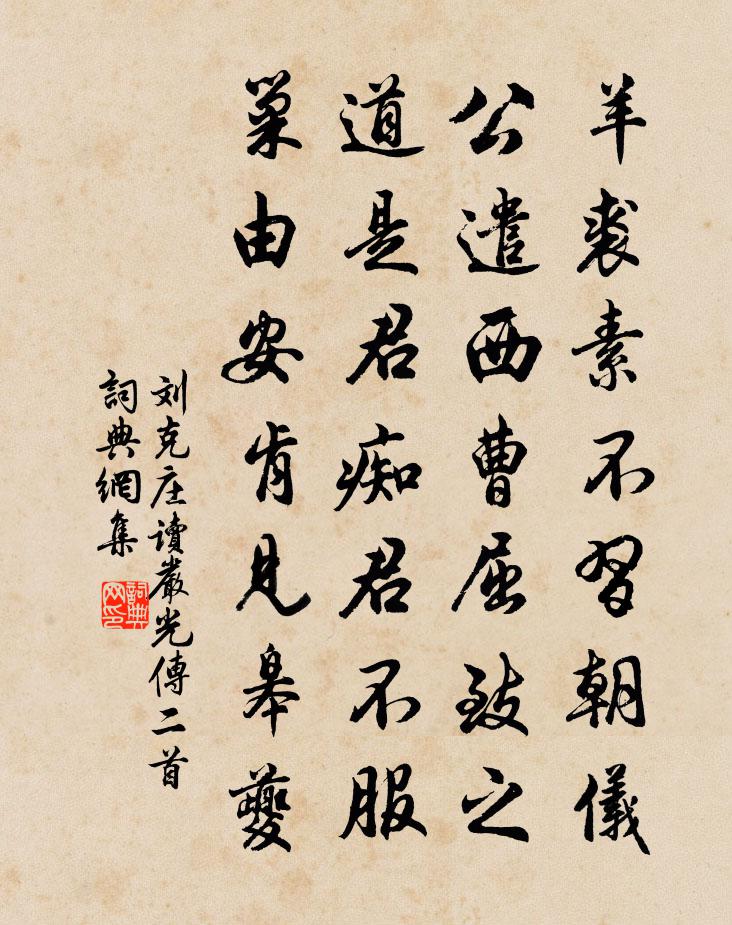 羊裘素不習朝儀
公遣西曹屈致之
道是君痴君不服
巢由安肯見皋夔
刘克庄讀嚴光傳二首
詞典網集
詞典
网印